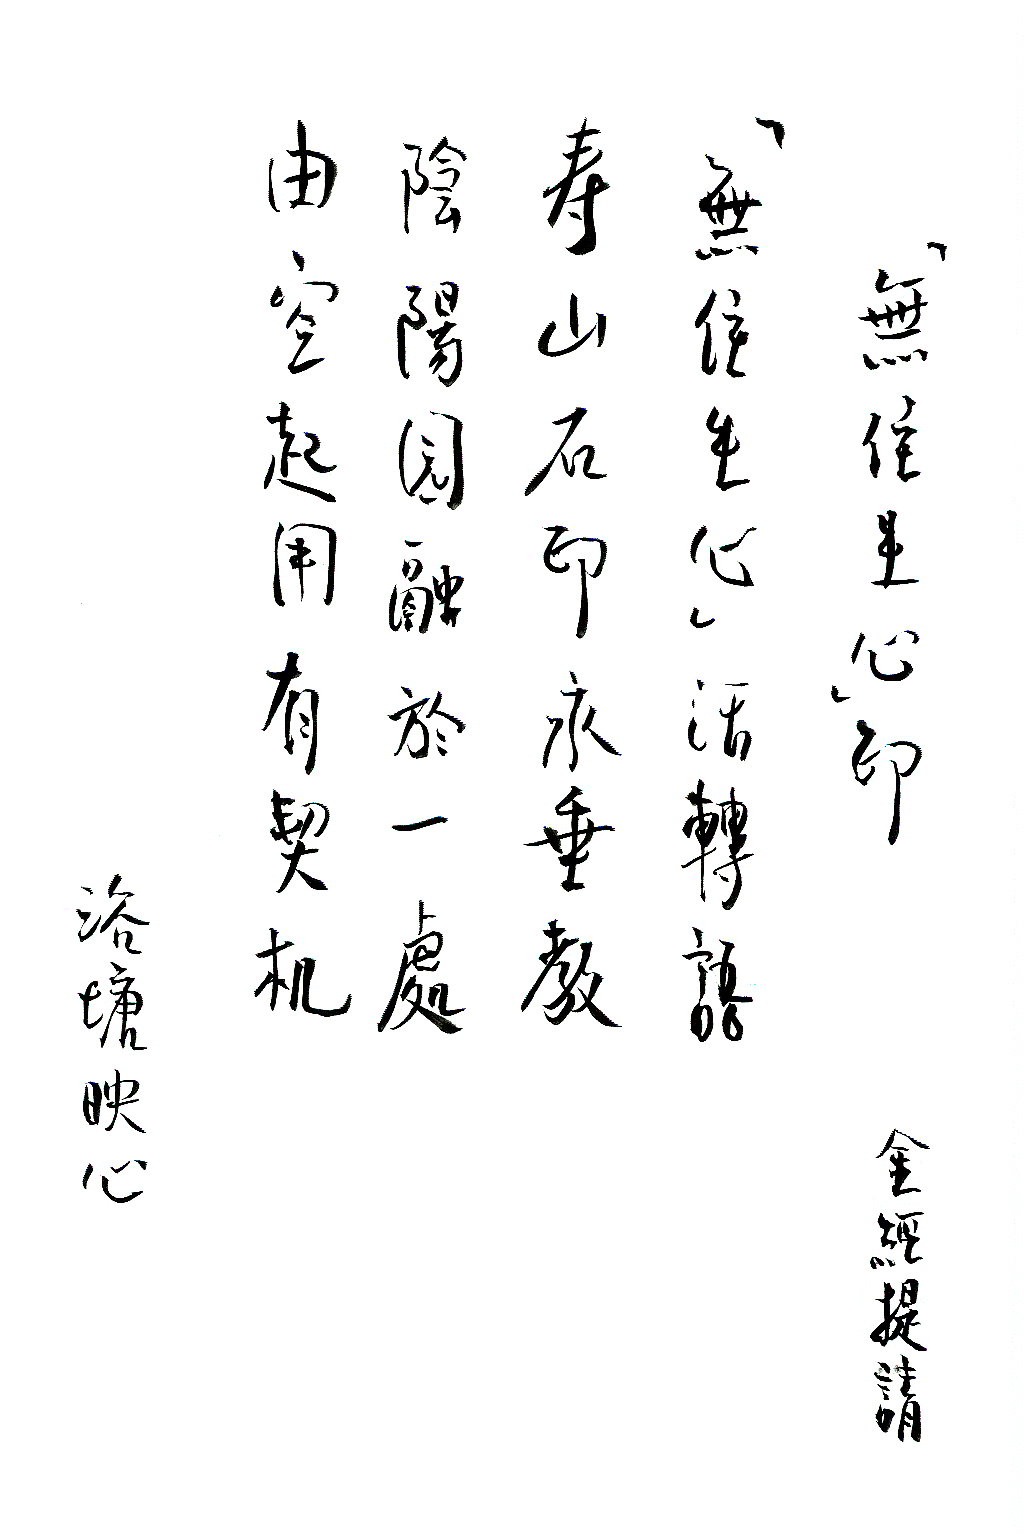 「無住生心」印
金經提請
「無住生心」活轉語
寿山石印永垂教
陰陽圓融於一處
由空起用有契机
浴塘映心